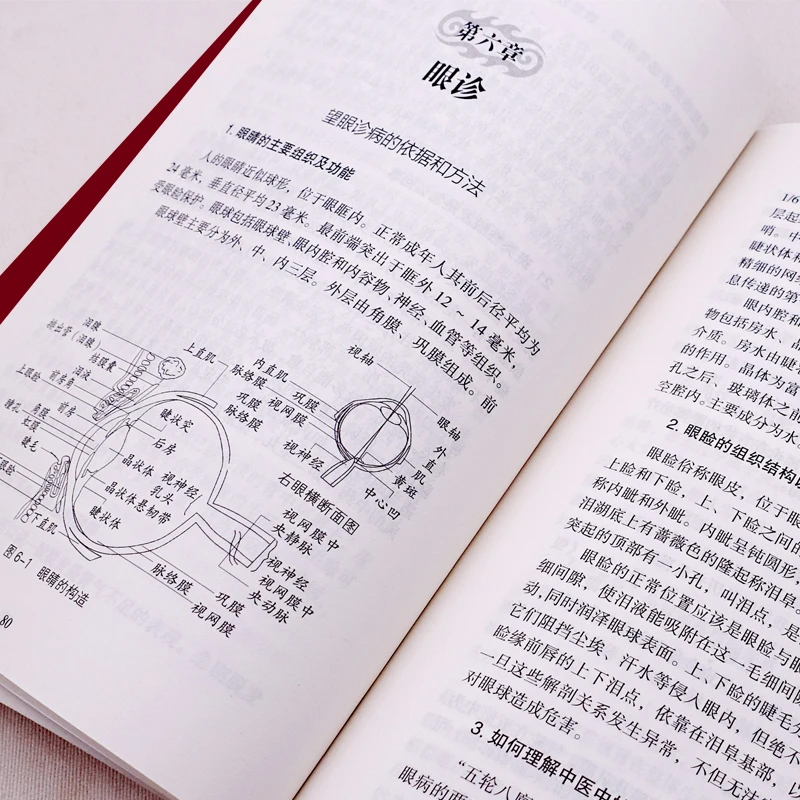 第六章
眼诊
望眼诊病的依据和方法
1. 眼睛的主要组织及功能
人的眼睛近似球形，位于眼眶内。正常成年人其前后径平均为
24 毫米，垂直径平均 23 毫米。最前端突出于眶外 12 ~ 14 毫米，
受眼睑保护。眼球包括眼球壁、眼内腔和内容物、神经、血管等组织。
眼球壁主要分为外、中、内三层。外层由角膜、巩膜组成。前
泪腺
排出管（泪腺）
结膜囊
泪液
上眼睑
前房角
瞳孔
角膜
前房
虹膜
睫毛
下直肌
上直肌
脉络膜
巩膜
视网膜
脉络膜
睫状突
后房
晶状体
视神经
乳头
晶状体悬韧带
睫状体
脉络膜
巩膜
视网膜
视网膜中
央静脉
视神经
视网膜中
央动脉
内直肌
巩膜
视网膜
视神经
视轴
眼轴
外直
肌
黄斑
中心凹
右眼横断面图
图6-1 眼睛的构造
80
1/6
层起
哨。中
睫状体和
精细的网络
息传递的第
眼内腔和
物包括房水、晶
介质。房水由睫
的作用。晶体为富
孔之后、玻璃体之前
空腔内。主要成分为水
2. 眼睑的组织结构
眼睑俗称眼皮，位于眼
上睑和下睑，上、下睑之间的
称内眦和外眦。内眦呈钝圆形，
泪湖底上有蔷薇色的隆起称泪阜。
突起的顶部有一小孔，叫泪点，是
眼睑的正常位置应该是眼睑与眼
细间隙，使泪液能吸附在这一毛细间隙
动，同时润泽眼球表面。上、下睑的睫毛
它们阻挡尘埃、汗水等侵入眼内，但绝不
睑缘前唇的上下泪点，依靠在泪阜基部，以
一旦这些解剖关系发生异常，不但无法
对眼球造成危害。
3. 如何理解中医中
“五轮八廓
眼病的两